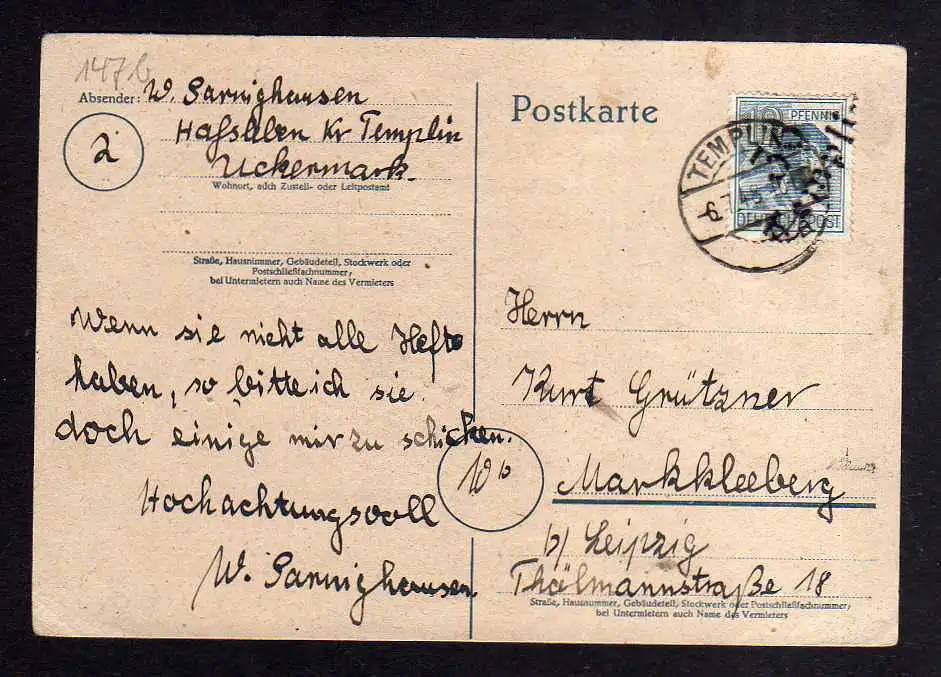 147b
Absender: W. Sarnighausen
Haßleben Kr Templin
Uckermark.
Wohnort, auch Zustell- oder Leitpostamt
2
Straße, Hausnummer, Gebäudeteil, Stockwerk oder
Postschließfachnummer,
bei Untermietern auch Name des Vermieters
Wenn sie nicht alle Hefte
haben, so bitte ich sie
doch einige mir zu schicken.
Hochachtungsvoll
W. Sarnighausen.
Postkarte
PFENNIG
DEUTSCHE POST
TEMPLIN
Herrn
Kurt Grützner
10b
Markkleeberg
b/ Leipzig
Thälmannstraße 18
Straße, Hausnummer, Gebäudeteil, Stockwerk oder Postschließfachnummer,
bei Untermietern auch Name des Vermieters